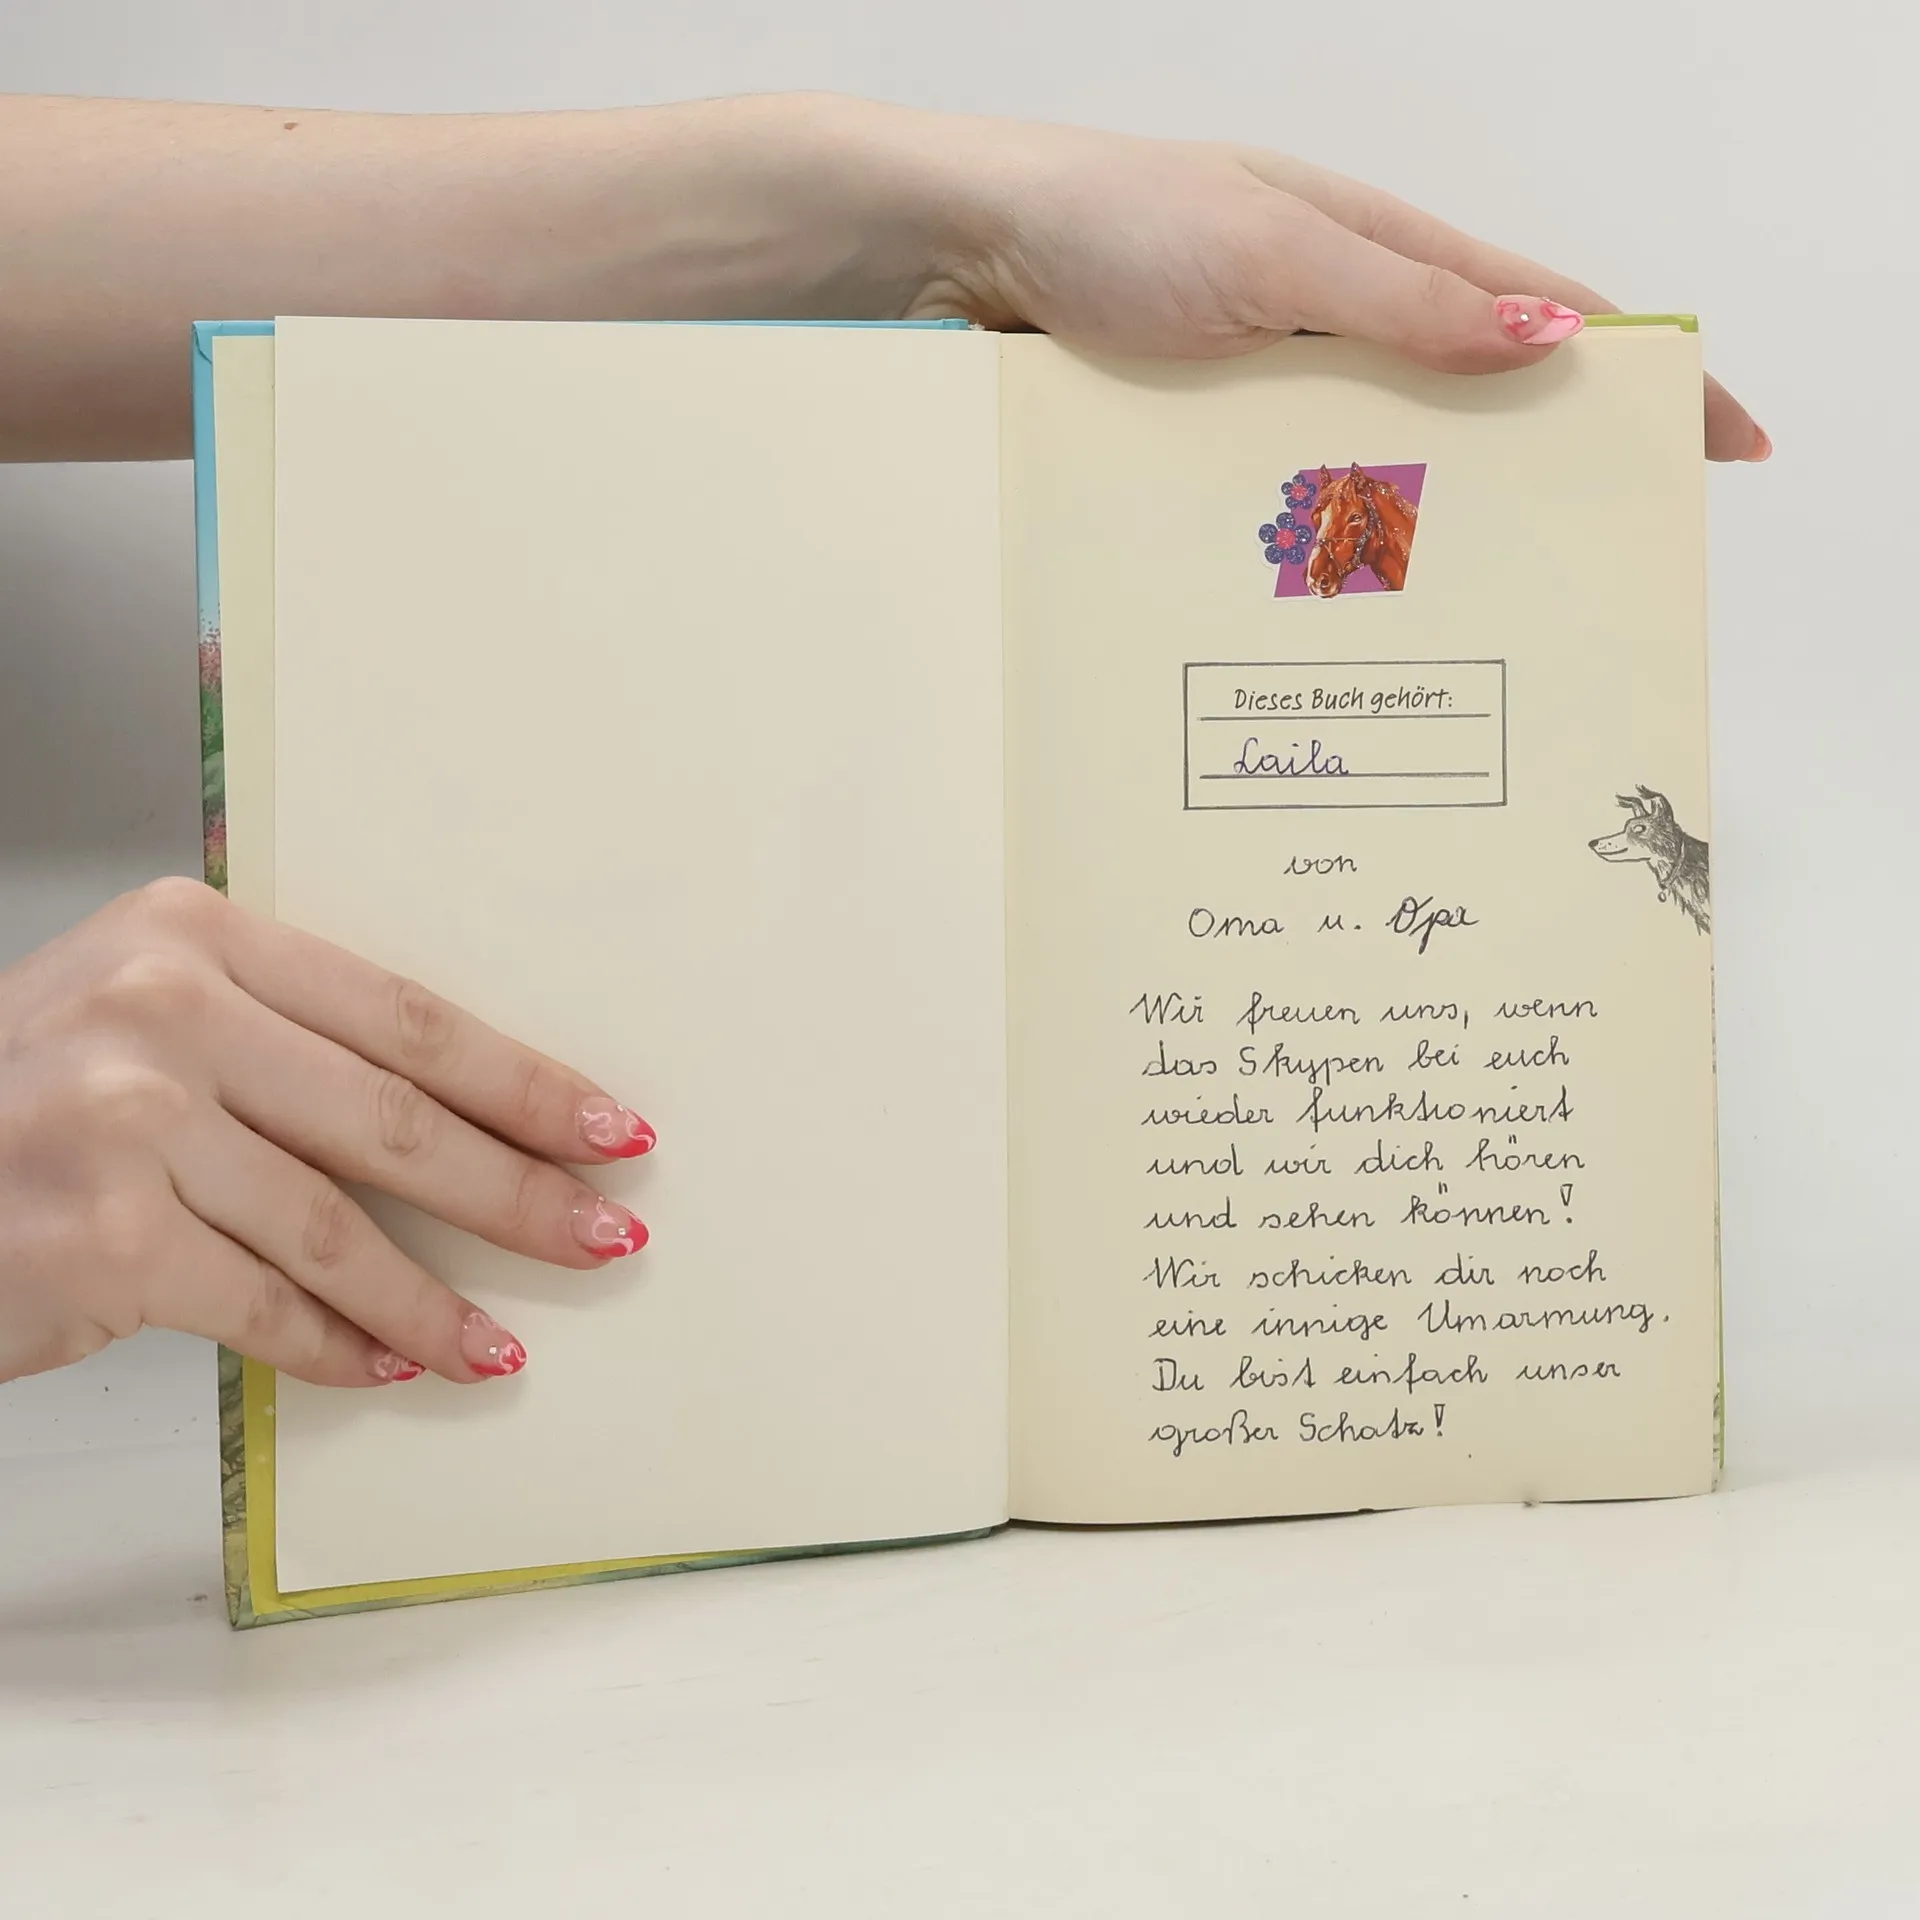 Dieses Buch gehört:
Laila
von
Oma u. Opa
Wir freuen uns, wenn
das Skypen bei euch
wieder funktioniert
und wir dich hören
und sehen können!
Wir schicken dir noch
eine innige Umarmung.
Du bist einfach unser
großer Schatz!